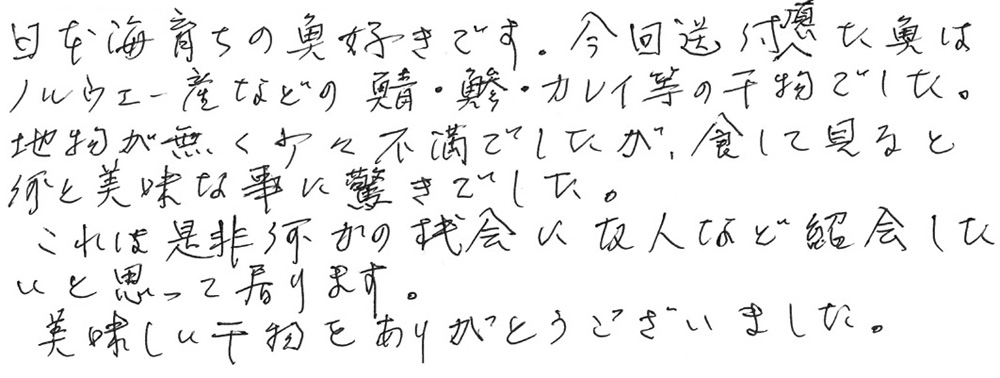 日本海育ちの魚好きです。今回送付頂いた魚は
ノルウェー産などの鯖・鯵・カレイ等の干物でした。
地物が無く少々不満でしたが、食して見ると
何と美味な事に驚きでした。
これは是非何かの機会に友人など紹会した
いと思って居ります。
美味しい干物をありがとうございました。